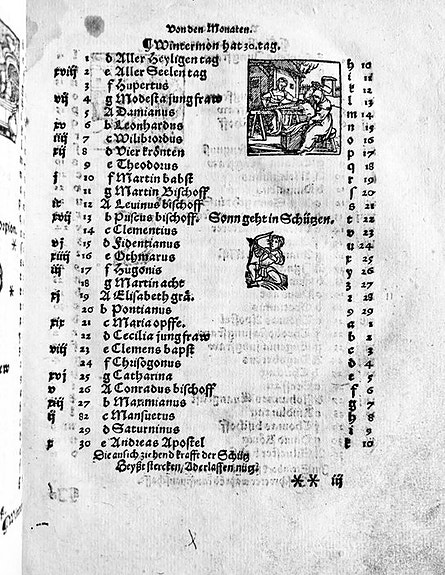 Von den Monaten.
¶ Wintermon hat 30. tag.
1 d Aller Heyligen tag h 10
xviij 2 e Aller Seelen tag i 11
3 f Hupertus k 12
vij 4 g Modesta jungfraw l 13
5 A Damianus m 14
xv 6 b Leonhardus n 15
iiij 7 c Wilibrordus o 16
xij 8 d Vier krönten p 17
9 e Theodorus q 18
j 10 f Martin babst r 19
11 g Martin Bischoff ſ 20
ix 12 A Levinus bischoff s 21
xvij 13 b Puscus bischoff. Sonn geht in Schützen. t 22
14 c Clementius v 23
vj 15 d Fidentianus u 24
xiiij 16 e Othmarus x 25
iij 17 f Hugonis y 26
18 g Martin acht z 27
xj 19 A Elisabeth grä. 28
20 b Pontianus 9 29
xix 21 c Maria opffe. a 1
22 d Cecilia jungfraw b 2
viij 23 e Clemens bapst c 3
24 f Chrisogonus d 4
xvj 25 g Catharina e 5
v 26 A Conradus bischoff f 6
xiij 27 b Maximianus g 7
ij 82 c Mansuetus h 8
29 d Saturninus i 9
x 30 e Andreas Apostel k 10
Die ansich ziehend krafft der Schütz
Heyßt stercken, Aderlassen nütz.
** iij